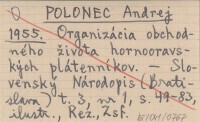 POLONEC Andrej
1955. Organizácia obchod-
ného života hornooravs-
kých plátenníkov. – Slo-
venský Národopis (Brati-
slava) t. 3, nr 1, s. 49-83,
ilustr., Rez., Zsf.